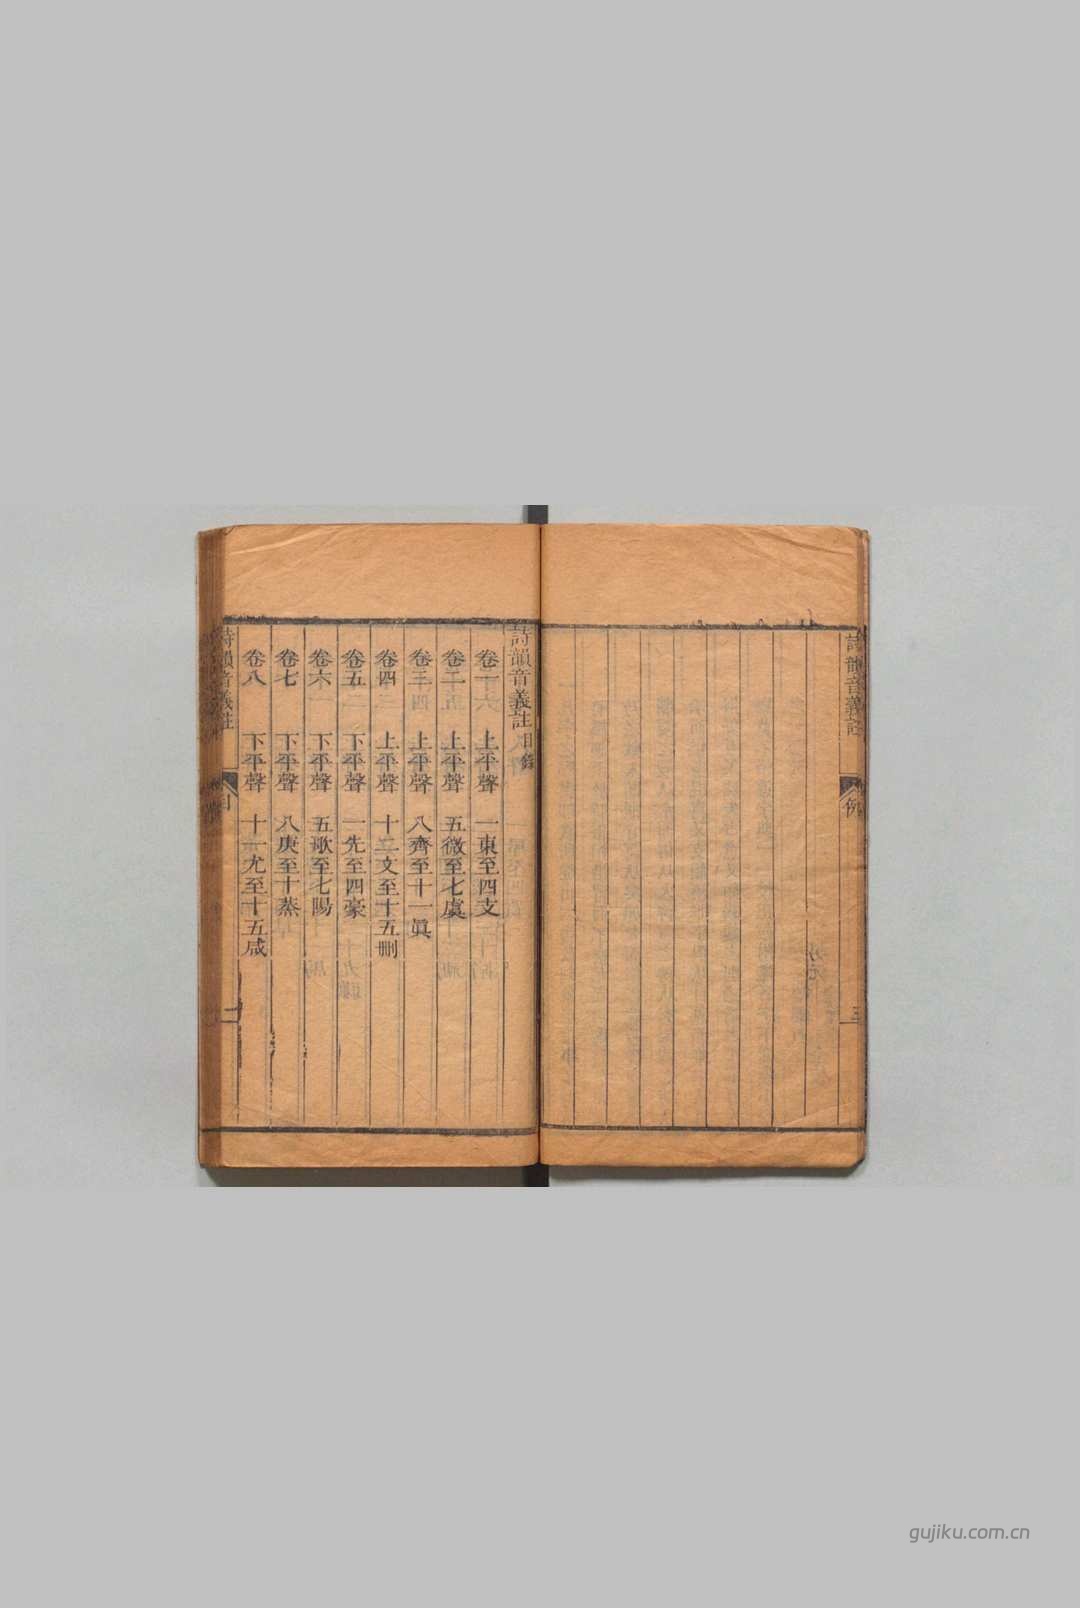 詩韻音義註
例
三
詩韻音義註目錄
卷一 上平聲 一東至四支
卷二 上平聲 五微至七虞
卷三 上平聲 八齊至十一眞
卷四 上平聲 十二文至十五刪
卷五 下平聲 一先至四豪
卷六 下平聲 五歌至七陽
卷七 下平聲 八庚至十蒸
卷八 下平聲 十一尤至十五咸
詩韻音義註
目
gujiku.com.cn